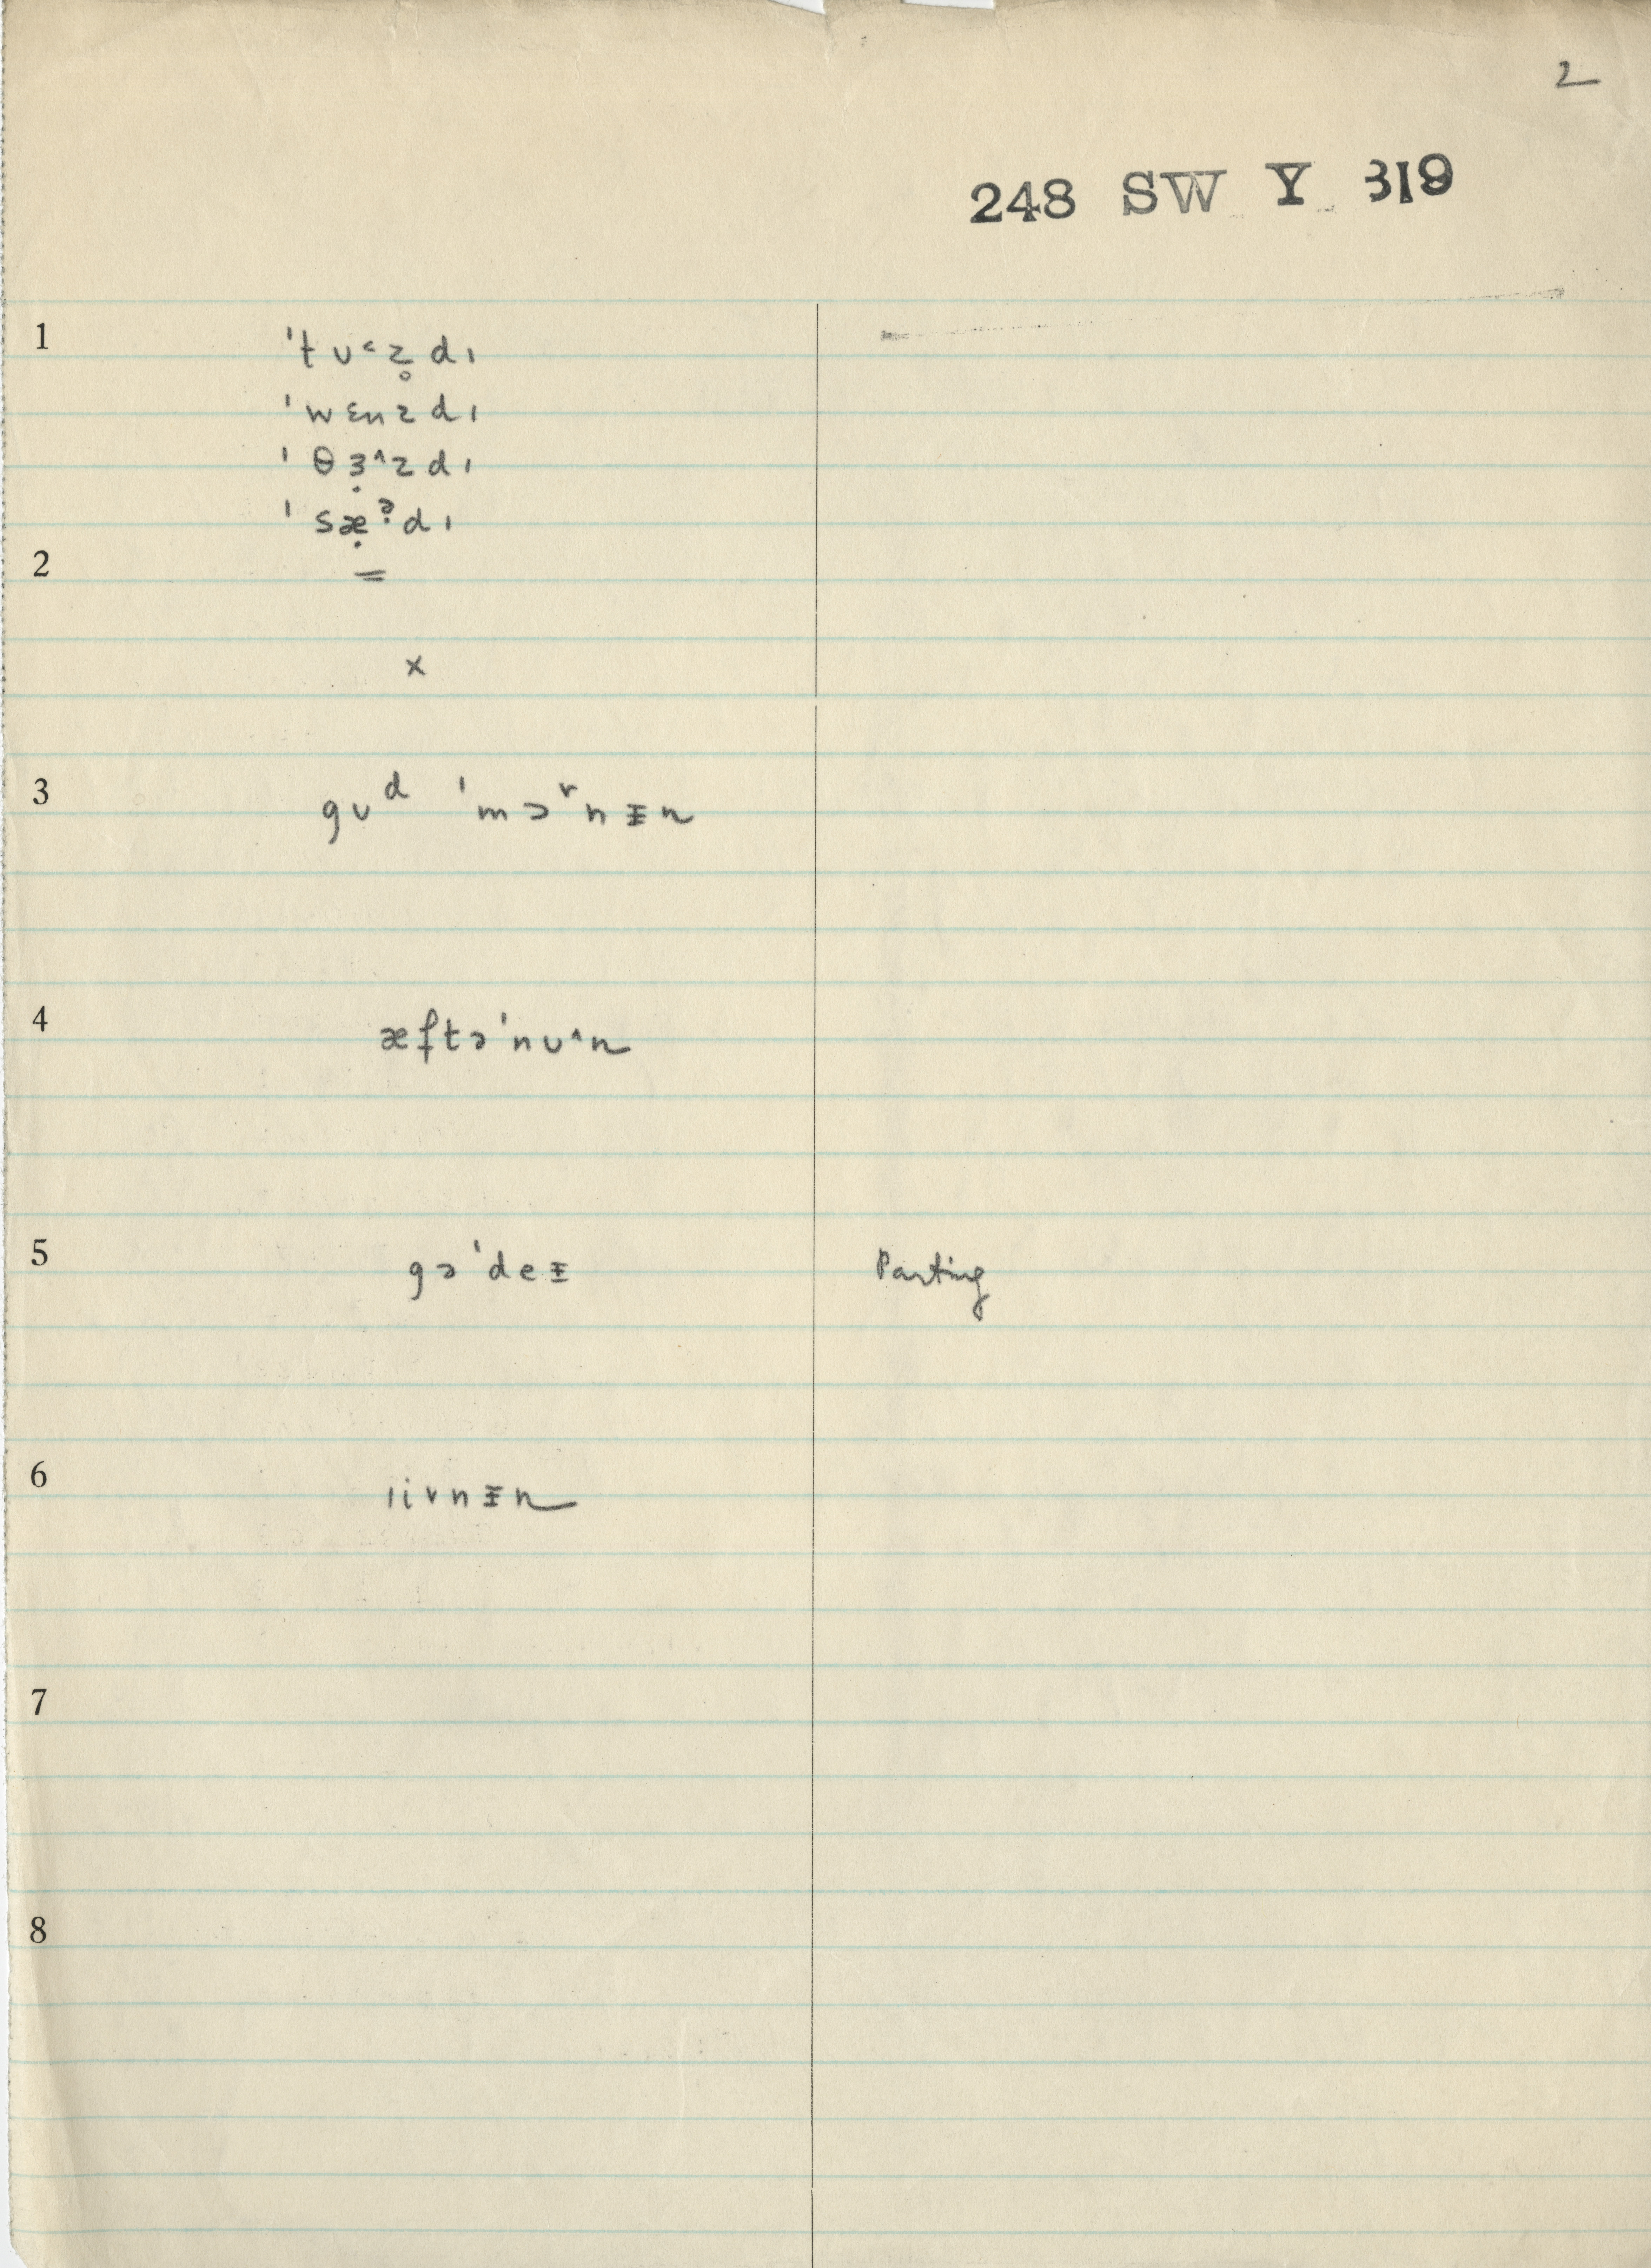 2
248 SW Y 319
1 ˈtʊ˂z̥dɪ
ˈwɛnzdɪ
ˈθɜ̣˄zdɪ
ˈsæ̣ᵊ̣dɪ
2 =
×
3 gʊᵈ ˈmɔ˞nɪ̵n
4 æftəˈnʊ˄n
5 gəˈdeɪ̵ Parting
6 ɪivnɪ̵n
7
8